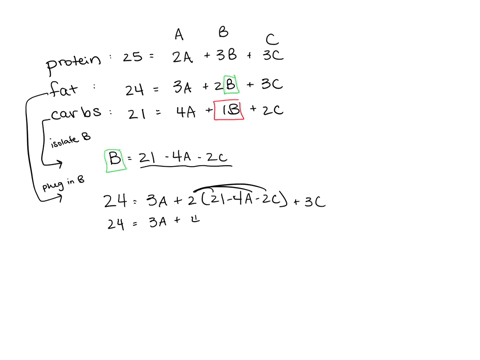 A B C
protein: 25 = 2A + 3B + 3C
fat: 24 = 3A + 2B + 3C
carbs: 21 = 4A + 1B + 2C
isolate B
B = 21 - 4A - 2C
plug in B
24 = 3A + 2(21-4A-2C) + 3C
24 = 3A +